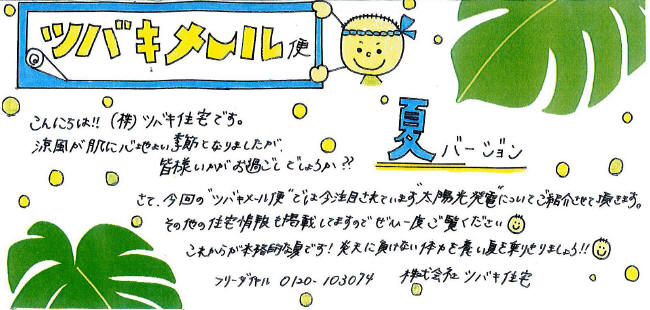 ツバキメール便
夏バージョン
こんにちは!! (株)ツバキ住宅です。
涼風が肌に心地よい季節となりましたが、
皆様いかがお過ごしでしょうか??
さて、今回の"ツバキメール便"では今注目されています"太陽光発電"についてご紹介させて頂きます。
その他の住宅情報も掲載してますのでぜひ一度ご覧ください
これからが本格的な夏です!炎天に負けない体力を養い夏を乗り切りましょう!!
フリーダイヤル 0120-103074 株式会社 ツバキ住宅